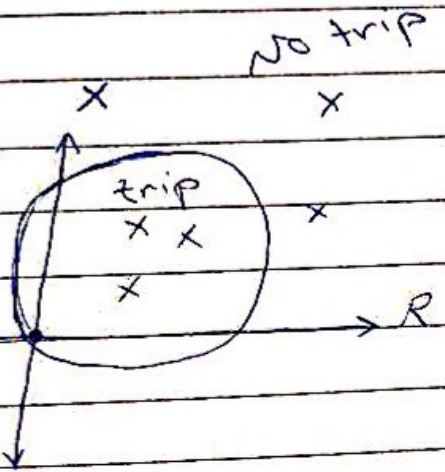 No trip
X
X
trip
X
X
X
X
R